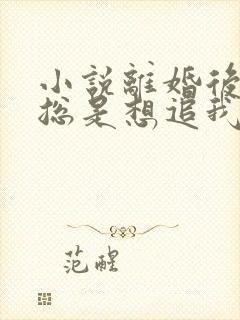 小說離婚後
總是想追我
范醒